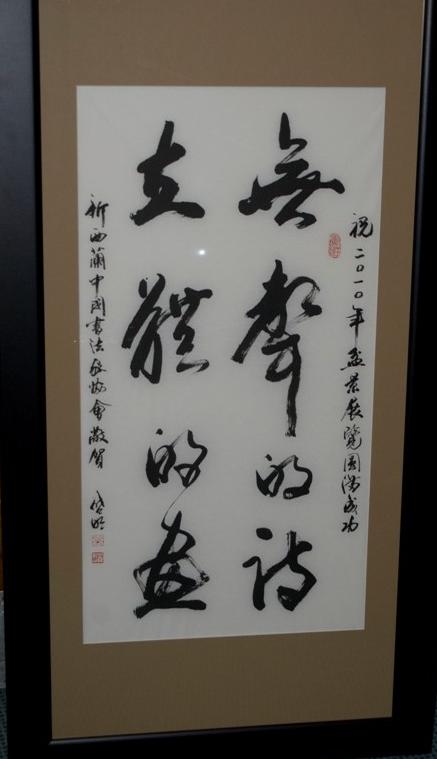 祝二〇一〇年盆景展覽圓滿成功
無聲的詩
立體的畫
新西蘭中國書法家協會敬賀